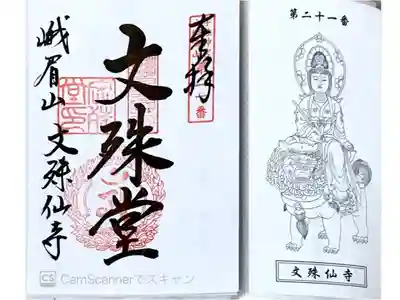 奉拝
番
文殊堂
峨眉山 文殊仙寺
CS CamScannerでスキャン
第二十一番
文殊仙寺